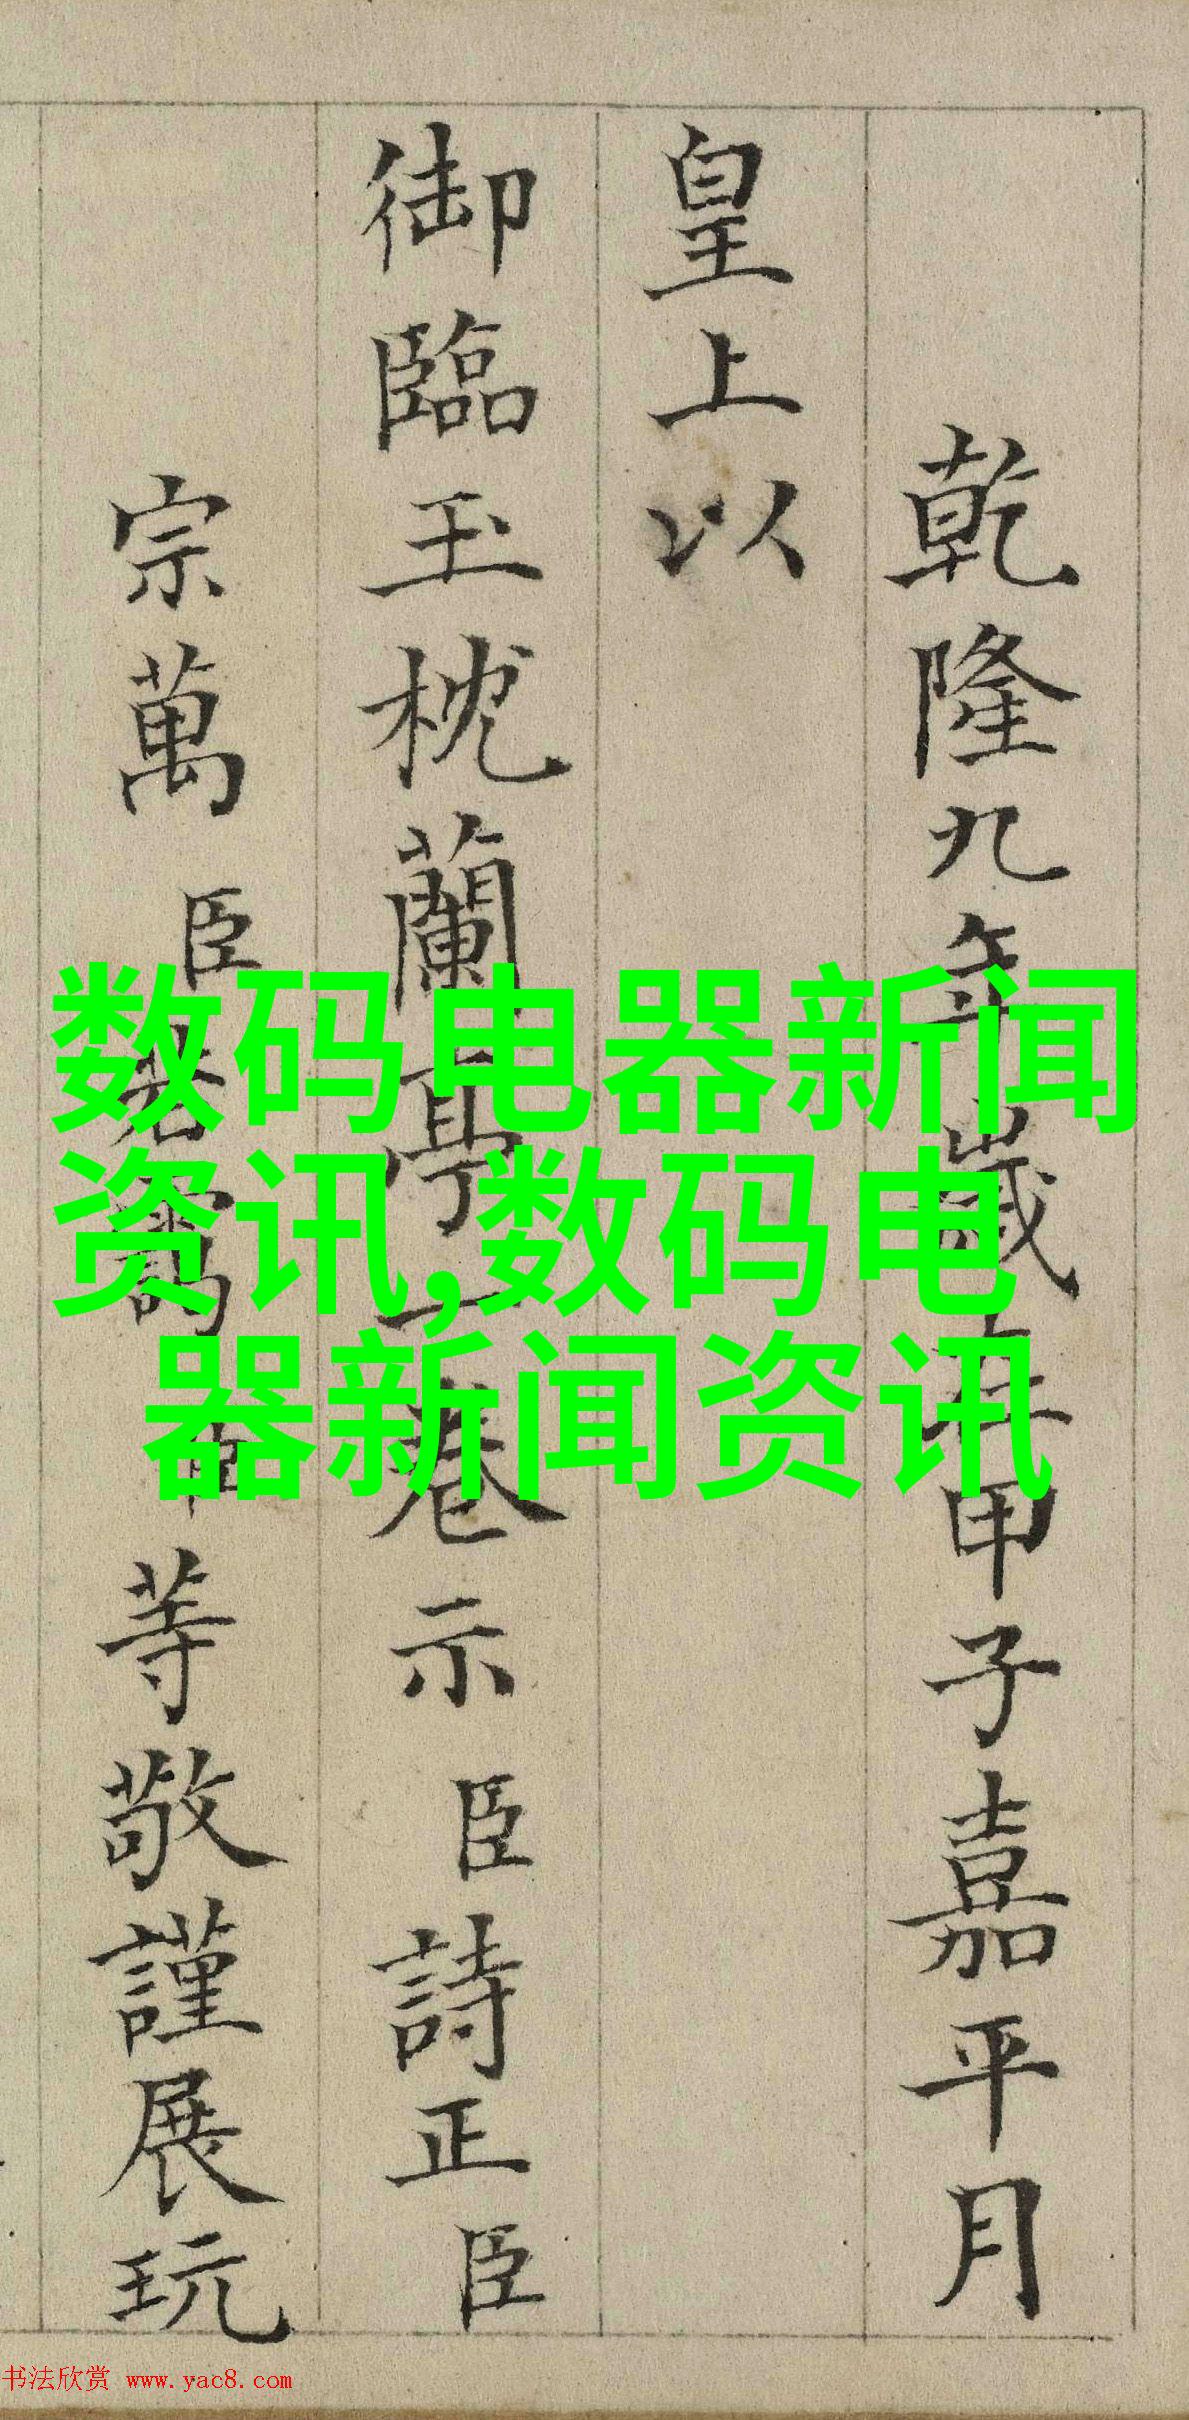 乾隆九年歲在甲子嘉平月
皇上以
御臨玉枕蘭亭一卷示臣詩正臣
宗萬臣若靄臣等敬謹展玩
数码电器新闻
资讯,数码电
器新闻资讯
书法欣赏 www.yac8.com